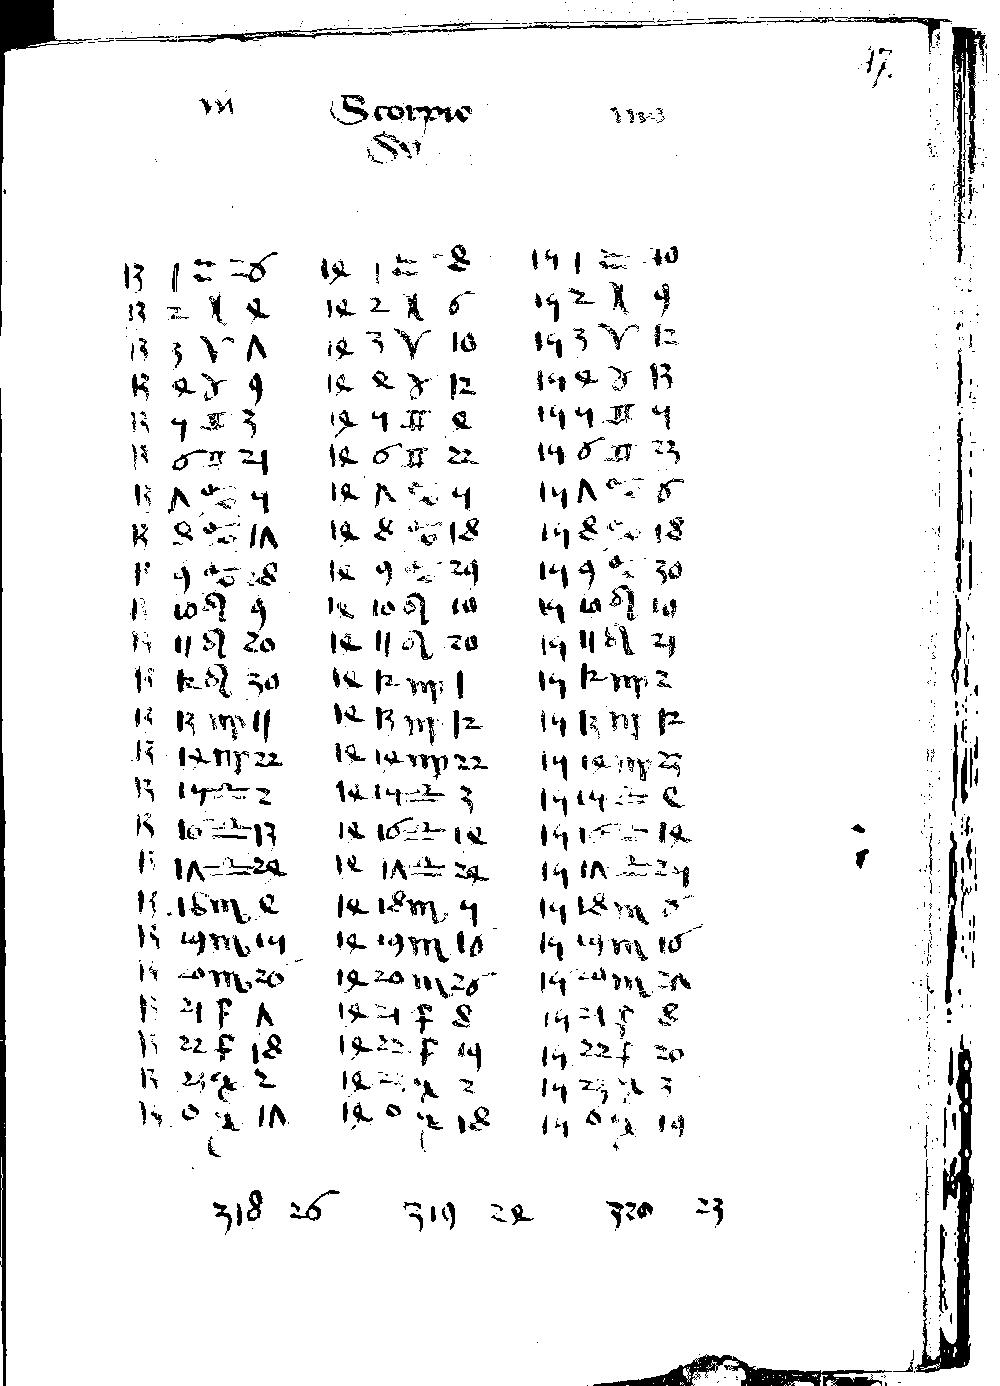 17.
♏ Scorpio ♏
13 1 ♒ 26 14 1 ♒ 28 15 1 ♒
13 2 ♓ 4 14 2 ♓ 6 15 2 ♓ 9
13 3 ♈ 7 14 3 ♈ 10 15 3 ♈ 12
13 4 ♉ 9 14 4 ♉ 12 15 4 ♉ 13
13 5 ♊ 3 14 5 ♊ 4 15 5 ♊ 5
13 6 ♊ 21 14 6 ♊ 22 15 6 ♊ 23
13 7 ♋ 5 14 7 ♋ 5 15 7 ♋ 6
13 8 ♋ 17 14 8 ♋ 18 15 8 ♋ 18
13 9 ♋ 28 14 9 ♋ 29 15 9 ♋ 30
13 10 ♌ 9 14 10 ♌ 10 15 10 ♌ 10
13 11 ♌ 20 14 11 ♌ 20 15 11 ♌ 21
13 12 ♌ 30 14 12 ♍ 1 15 12 ♍ 2
13 13 ♍ 11 14 13 ♍ 12 15 13 ♍ 12
13 14 ♍ 22 14 14 ♍ 22 15 14 ♍ 23
13 15 ♎ 2 14 15 ♎ 3 15 15 ♎ 4
13 16 ♎ 13 14 16 ♎ 14 15 16 ♎ 14
13 17 ♎ 24 14 17 ♎ 24 15 17 ♎ 25
13 18 ♏ 4 14 18 ♏ 5 15 18 ♏ 6
13 19 ♏ 15 14 19 ♏ 16 15 19 ♏ 16
13 20 ♏ 26 14 20 ♏ 26 15 20 ♏ 27
13 21 ♐ 7 14 21 ♐ 8 15 21 ♐ 8
13 22 ♐ 18 14 22 ♐ 19 15 22 ♐ 20
13 23 ♑ 2 14 23 ♑ 2 15 23 ♑ 3
13 0 ♑ 17 14 0 ♑ 18 15 0 ♑ 19
318 26 319 24 320 23